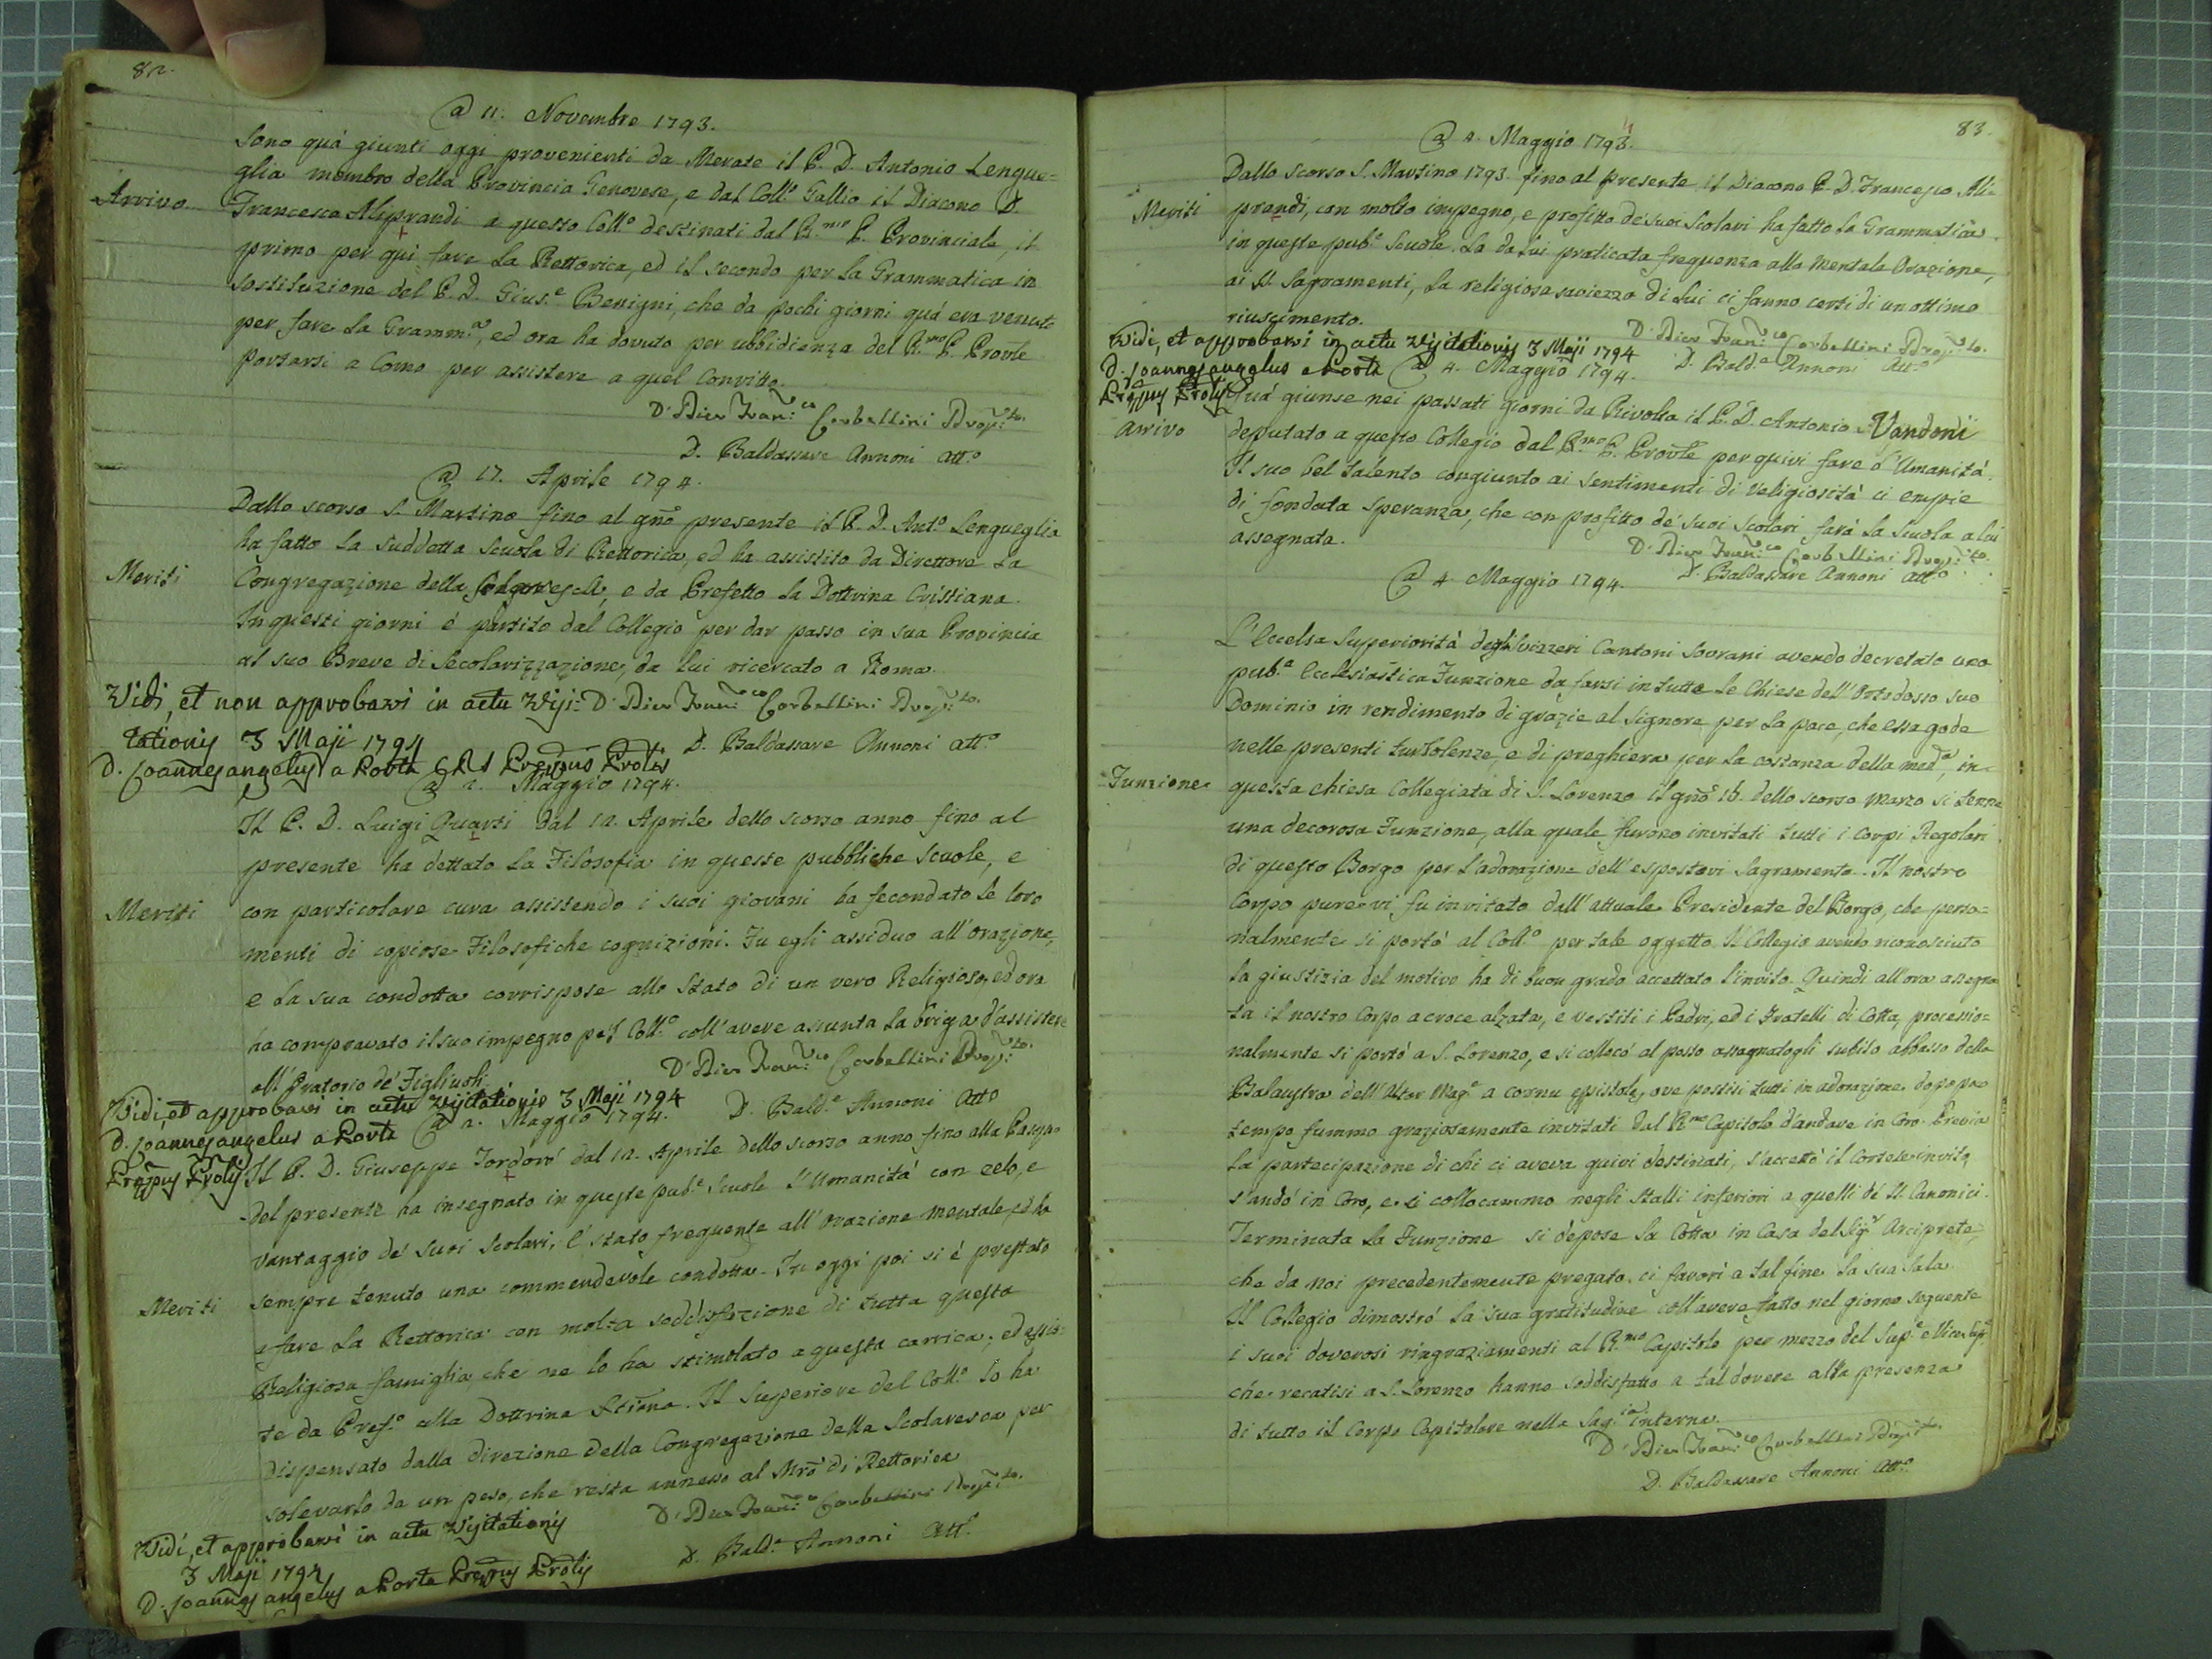 82.
@ 11. Novembre 1793.
Sono quà giunti oggi provenienti da Merate il P. D. Antonio Lengue=
glia membro della Provincia Genovese, e dal Coll.º Gallio il Diacono D.
Arrivo
Francesco Aliprandi a questo Coll.º destinati dal R.mo P. Provinciale, il
primo per quì fare la Rettorica, ed il secondo per la Grammatica in
sostituzione del P. D. Gius.e Benigni, che da pochi giorni quà era venuto
per fare la Gramm.a, ed ora ha dovuto per ubbidienza del R.mo P. Provle
portarsi a Como per assistere a quel Convitto.
D. Pier Fran.co Corbellini Prep.to
D. Baldassare Annoni Att.º
@ 17. Aprile 1794.
Dallo scorso S. Martino fino al gno presente il P. D. Ant.º Lengueglia
ha fatto la suddetta Scuola di Rettorica, ed ha assistito da Direttore la
Meriti
Congregazione della Scolaresca, e da Prefetto la Dottrina Cristiana.
In questi giorni é partito dal Collegio per dar passo in sua Provincia
al suo Breve di Secolarizzazione, da lui ricercato a Roma.
Vidi, et non approbavi in actu Visi= D. Pier Fran.co Corbellini Prep.to
tationis 3 Maji 1794 D. Baldassare Annoni Att.º
D. Joannes angelus a Porta C.R.S. Prepus Prolis
@ 2. Maggio 1794.
Il P. D. Luigi Quarti dal 12. Aprile dello scorso anno fino al
presente ha dettato la Filosofia in queste pubbliche Scuole, e
Meriti
con particolare cura assistendo i suoi giovani ha fecondato le loro
menti di copiose Filosofiche cognizioni. Fu egli assiduo all'orazione,
e la sua condotta corrispose allo Stato di un vero Religioso, ed ora
ha comprovato il suo impegno pel Coll.º coll'avere assunta la briga d'assistere
all'Oratorio de' Figliuoli. D. Pier Fran.co Corbellini Prep.to
Vidi, et approbavi in actu Visitationis 3 Maji 1794 D. Bald.e Annoni Att.º
D. Joannes angelus a Porta @ 2. Maggio 1794.
Prepus Prolis Il P. D. Giuseppe Tordorò dal 12. Aprile dello scorso anno fino alla Pasqua
del presente ha insegnato in queste pub.e Scuole l'Umanità con zelo, e
vantaggio de' suoi Scolari, é stato frequente all'orazione mentale, ed ha
Meriti
sempre tenuto una commendevole condotta. In oggi poi si è prestato
a fare la Rettorica con molta soddisfazione di tutta questa
Religiosa famiglia, che ne lo ha stimolato a questa carrica, ed assis=
te da Pref.º alla Dottrina Xtiana. Il Superiore del Coll.º lo ha
dispensato dalla direzione della Congregazione della Scolaresca per
solevarlo da un peso, che resta annesso al Mrõ di Rettorica
Vidi, et approbavi in actu Visitationis D. Pier Fran.co Corbellini Prep.to
3 Maji 1794 D. Bald.e Annoni Att.º
D. Joannes angelus a Porta Prepus Prolis
83.
@ 2. Maggio 1794.
Dallo scorso S. Martino 1793. fino al presente il Diacono P. D. Francesco Ali=
Meriti
prandi, con molto impegno, e profitto de' suoi Scolari ha fatto la Grammatica
in queste pub.e Scuole. La da lui praticata frequenza alla mentale Orazione,
ai SS. Sagramenti, la religiosa saviezza di lui ci fanno certi di un ottimo
riuscimento.
D. Pier Fran.co Corbellini Prep.to
Vidi, et approbavi in actu Visitationis 3 Maji 1794 D. Bald.e Annoni Att.º
D. Joannes angelus a Porta @ 4. Maggio 1794.
Prepus Prolis Quà giunse nei passati giorni da Rivolta il P. D. Antonio Vandoni
Arrivo
deputato a questo Collegio dal R.mo P. Provle per quivi fare l'Umanità.
Il suo bel talento congiunto ai sentimenti di religiosità ci empie
di fondata speranza, che con profitto de' suoi Scolari farà la Scuola a lui
assegnata. D. Pier Fran.co Corbellini Prep.to
@ 4. Maggio 1794. D. Baldassare Annoni Att.º
L'Eccelsa Superiorità degli Svizzeri Cantoni Sovrani avendo decretato una
pub.a Ecclesiastica Funzione da farsi in tutte le Chiese dell'Ortodosso suo
Dominio in rendimento di grazie al Signore per la pace, che essa gode
nelle presenti turbolenze, e di preghiera per la costanza della med.a, in
Funzione
questa Chiesa Collegiata di S. Lorenzo il gno 16. dello scorso Marzo si tenne
una decorosa Funzione, alla quale furono invitati tutti i Corpi Regolari
di questo Borgo per l'adorazione dell'espostovi Sagramento. Il nostro
Corpo pure vi fu invitato dall'attuale Presidente del Borgo, che perso=
nalmente si portò al Coll.º per tale oggetto. Il Collegio avendo riconosciuto
la giustizia del motivo ha di buon grado accettato l'invito. Quindi all'ora assegna
ta il nostro Corpo a croce alzata, e vestiti i Padri, ed i Fratelli di Cotta, processio=
nalmente si portò a S. Lorenzo, e si collocò al posto assegnatogli subito abbasso della
Balaustra dell'Altar Mag.e a cornu epistole, ove postisi tutti in adorazione dopo poco
tempo fummo graziosamente invitati dal R.mo Capitolo d'andare in Coro. Previa
la partecipazione di chi ci aveva quivi destinati, s'accettò il cortese invito,
s'andò in Coro, e si collocammo negli Stalli inferiori a quelli de' SS. Canonici.
Terminata la Funzione si depose la Cotta in Casa del Sig.r Arciprete,
che da noi precedentemente pregato ci favorì a tal fine la sua Sala.
Il Collegio dimostrò la sua gratitudine coll'avere fatto nel giorno seguente
i suoi doverosi ringraziamenti al R.mo Capitolo per mezzo del Sup.e e Vice Sup.e
che recatisi a S. Lorenzo hanno soddisfatto a tal dovere alla presenza
di tutto il Corpo Capitolare nella Sag.ia interna.
D. Pier Fran.co Corbellini Prep.to
D. Baldassare Annoni Att.º